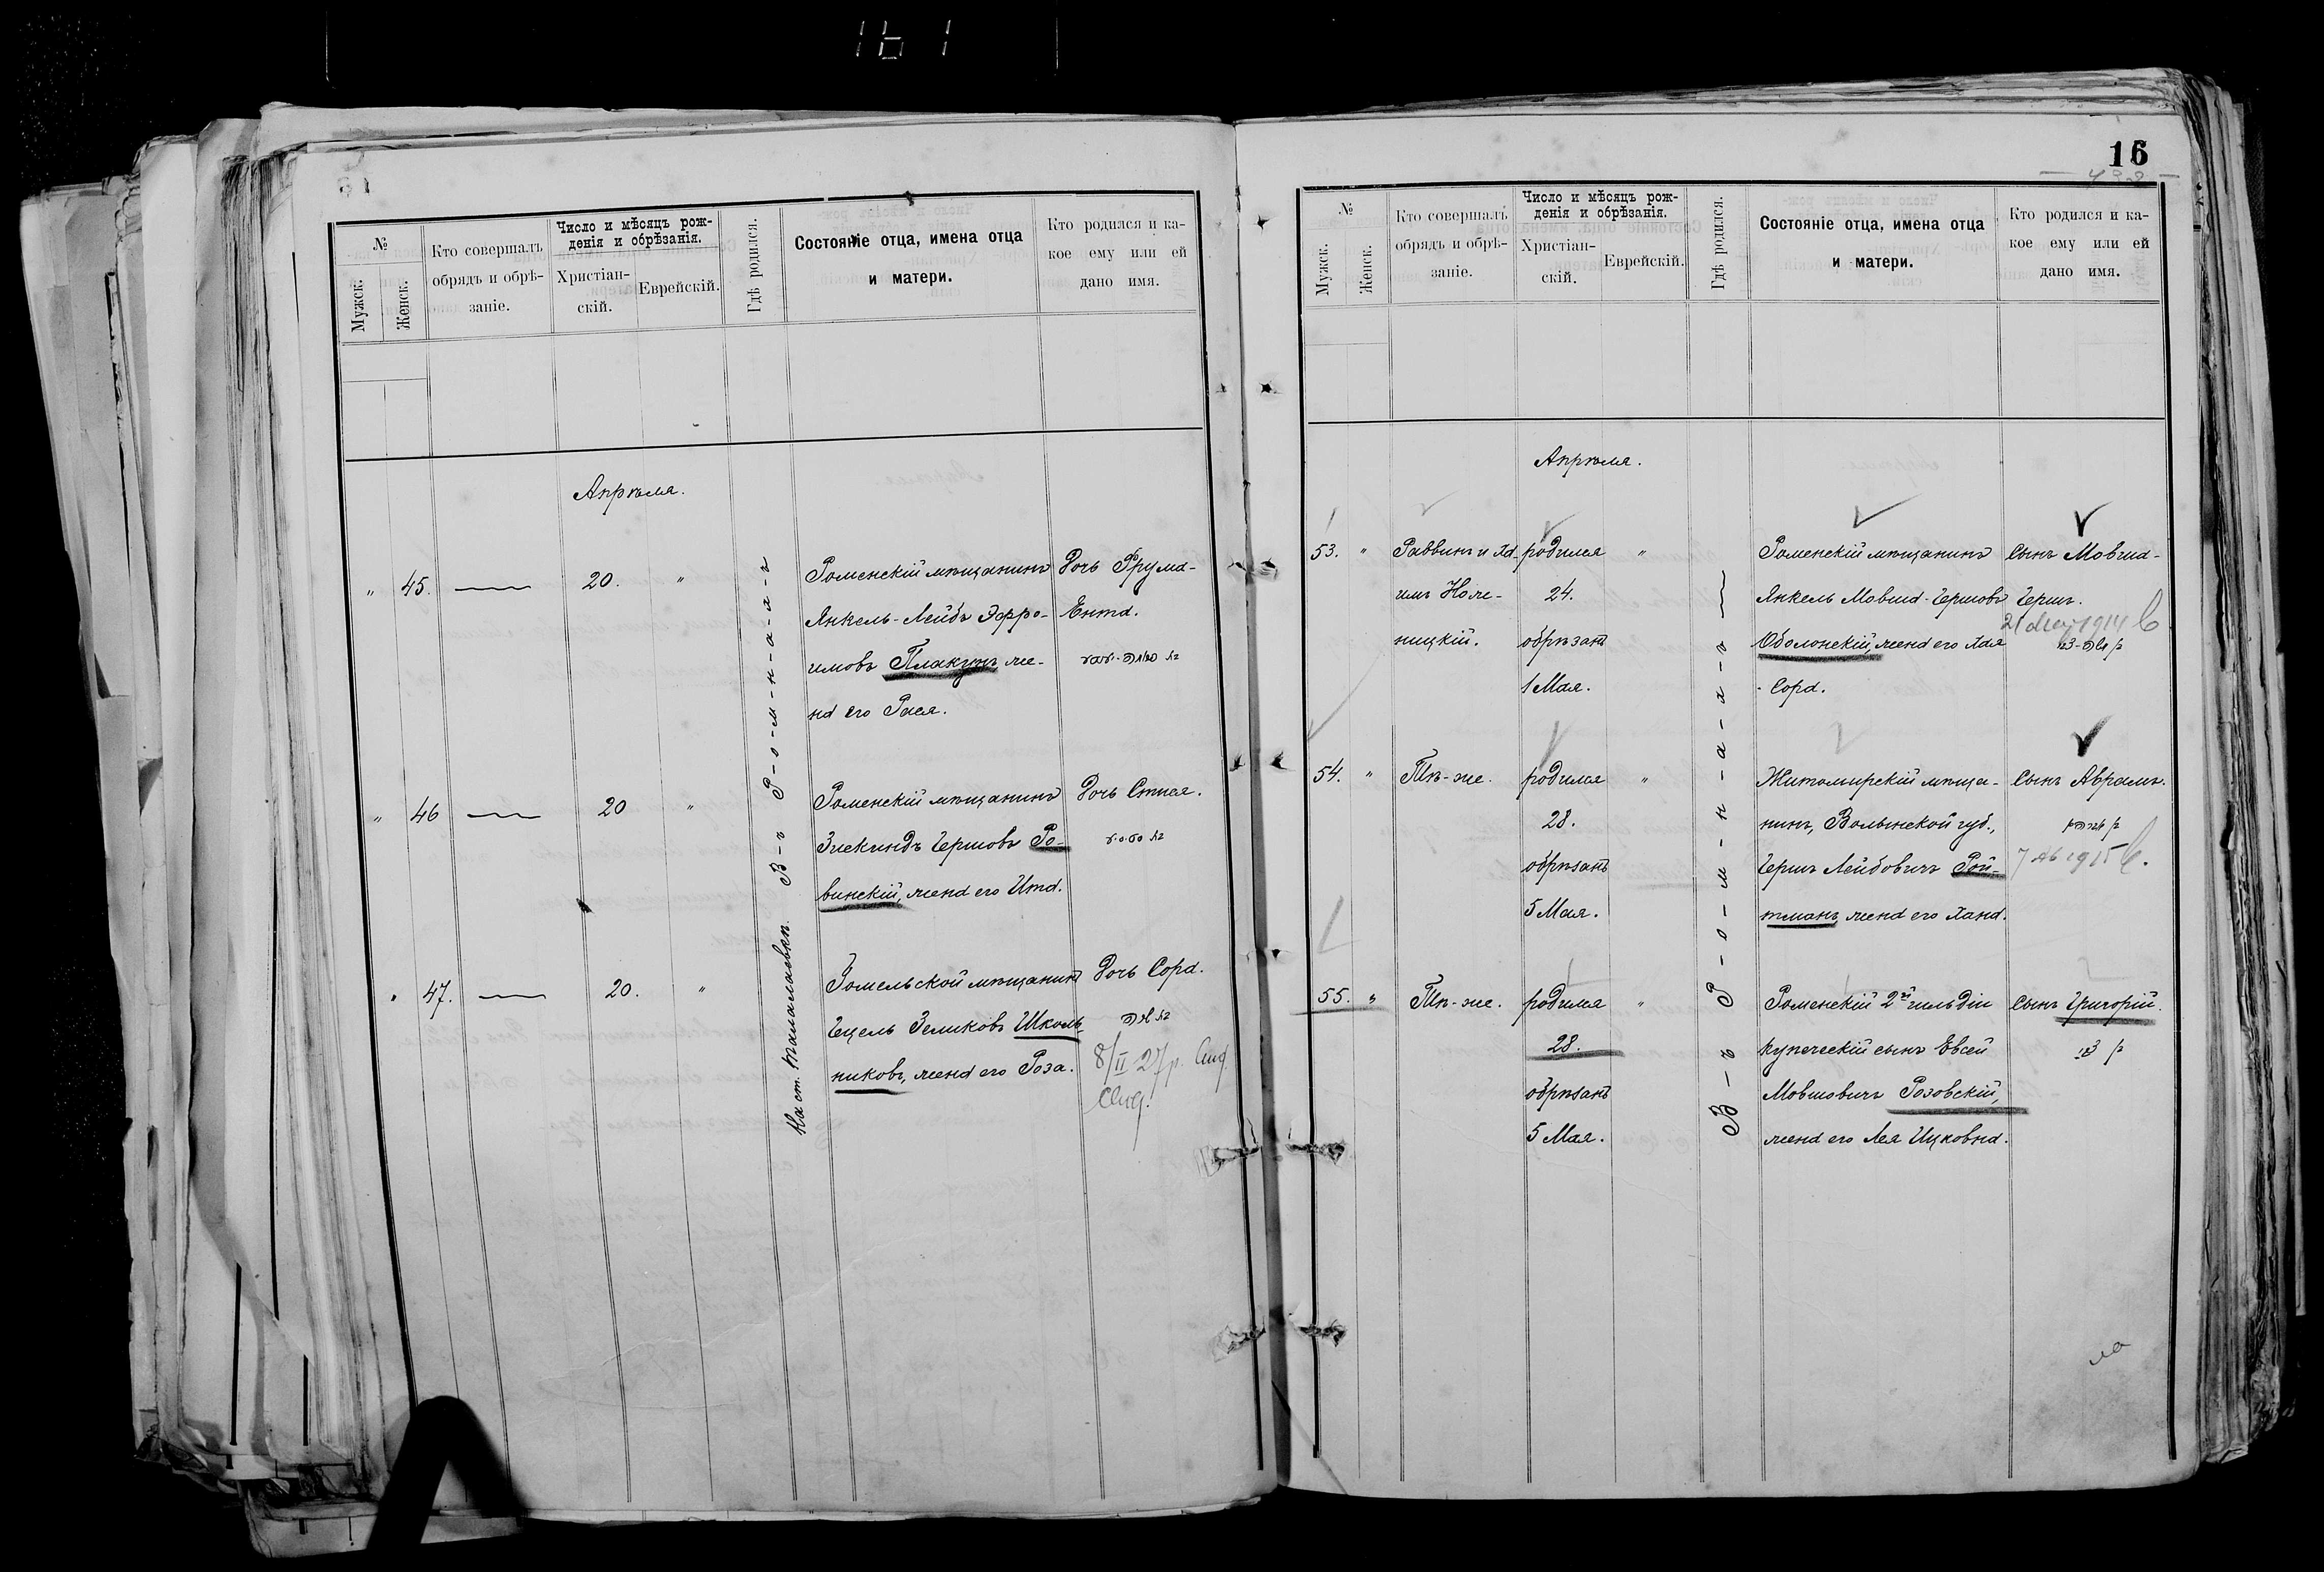 161
№
Мужск.
Женск.
Кто совершалъ
обрядъ и обрѣ-
заніе.
Число и мѣсяцъ рож-
денія и обрѣзанія.
Христіан-
скій.
Еврейскій.
Гдѣ родился.
Состояніе отца, имена отца
и матери.
Кто родился и ка-
кое ему или ей
дано имя.
Апрѣля.
В-ъ Р-о-м-н-а-х-ъ
На ст. Талалаевкѣ
" 45. — 20. "
Роменскій мѣщанинъ
Янкель-Лейбъ Эфро-
имовъ Плакунъ же-
на его Рася.
Дочь Фрума-
Ента.
" 46 — 20 "
Роменскій мѣщанинъ
Зискиндъ Гершовъ Ро-
винскій, жена его Ита.
Дочь Стися.
" 47. — 20. "
Гомельской мѣщанинъ
Гецель Зеликовъ Школь-
никовъ, жена его Роза.
Дочь Сора.
8/II 27 р.
16
№
Мужск.
Женск.
Кто совершалъ
обрядъ и обрѣ-
заніе.
Число и мѣсяцъ рож-
денія и обрѣзанія.
Христіан-
скій.
Еврейскій.
Гдѣ родился.
Состояніе отца, имена отца
и матери.
Кто родился и ка-
кое ему или ей
дано имя.
Апрѣля.
В-ъ Р-о-м-н-а-х-ъ
53. "
Раввинъ и Ха-
имъ
ницкій.
родился "
24.
обрѣзанъ
1 Мая.
Роменскій мѣщанинъ
Янкель Мовша-Гершовъ
Оболонскій, жена его Хая
-Сора.
Сынъ Мовша-
Гершъ.
1914
54. "
Тѣ-же.
родился "
28.
обрѣзанъ
5 Мая.
Житомирскій мѣща-
нинъ, Волынской губ.,
Гершъ Лейбовичъ Рой-
тманъ, жена его Хана.
Сынъ Абрамъ.
1915
55. "
Тѣ-же.
родился "
28.
обрѣзанъ
5 Мая.
Роменскій 2й гильдіи
купеческій сынъ Евсей
Мовшовичъ Розовскій,
жена его Лея Ицковна.
Сынъ Григорій.